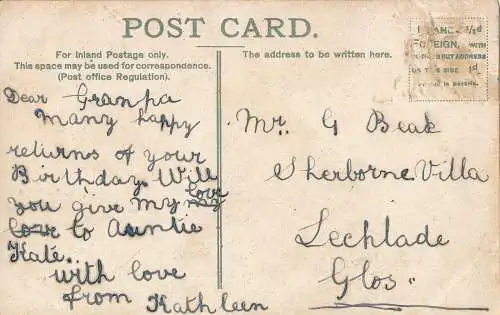 POST CARD.
For Inland Postage only.
This space may be used for correspondence.
(Post office Regulation).
The address to be written here.
INLAND ½d
FOREIGN,
ON THIS SIDE 1d
Dear Granpa
Many happy
returns of your
Birthday. Will
you give my my love
love to Auntie
Kate.
with love
from Kathleen
Mr. G Beak
Sherborne Villa
Lechlade
Glos.